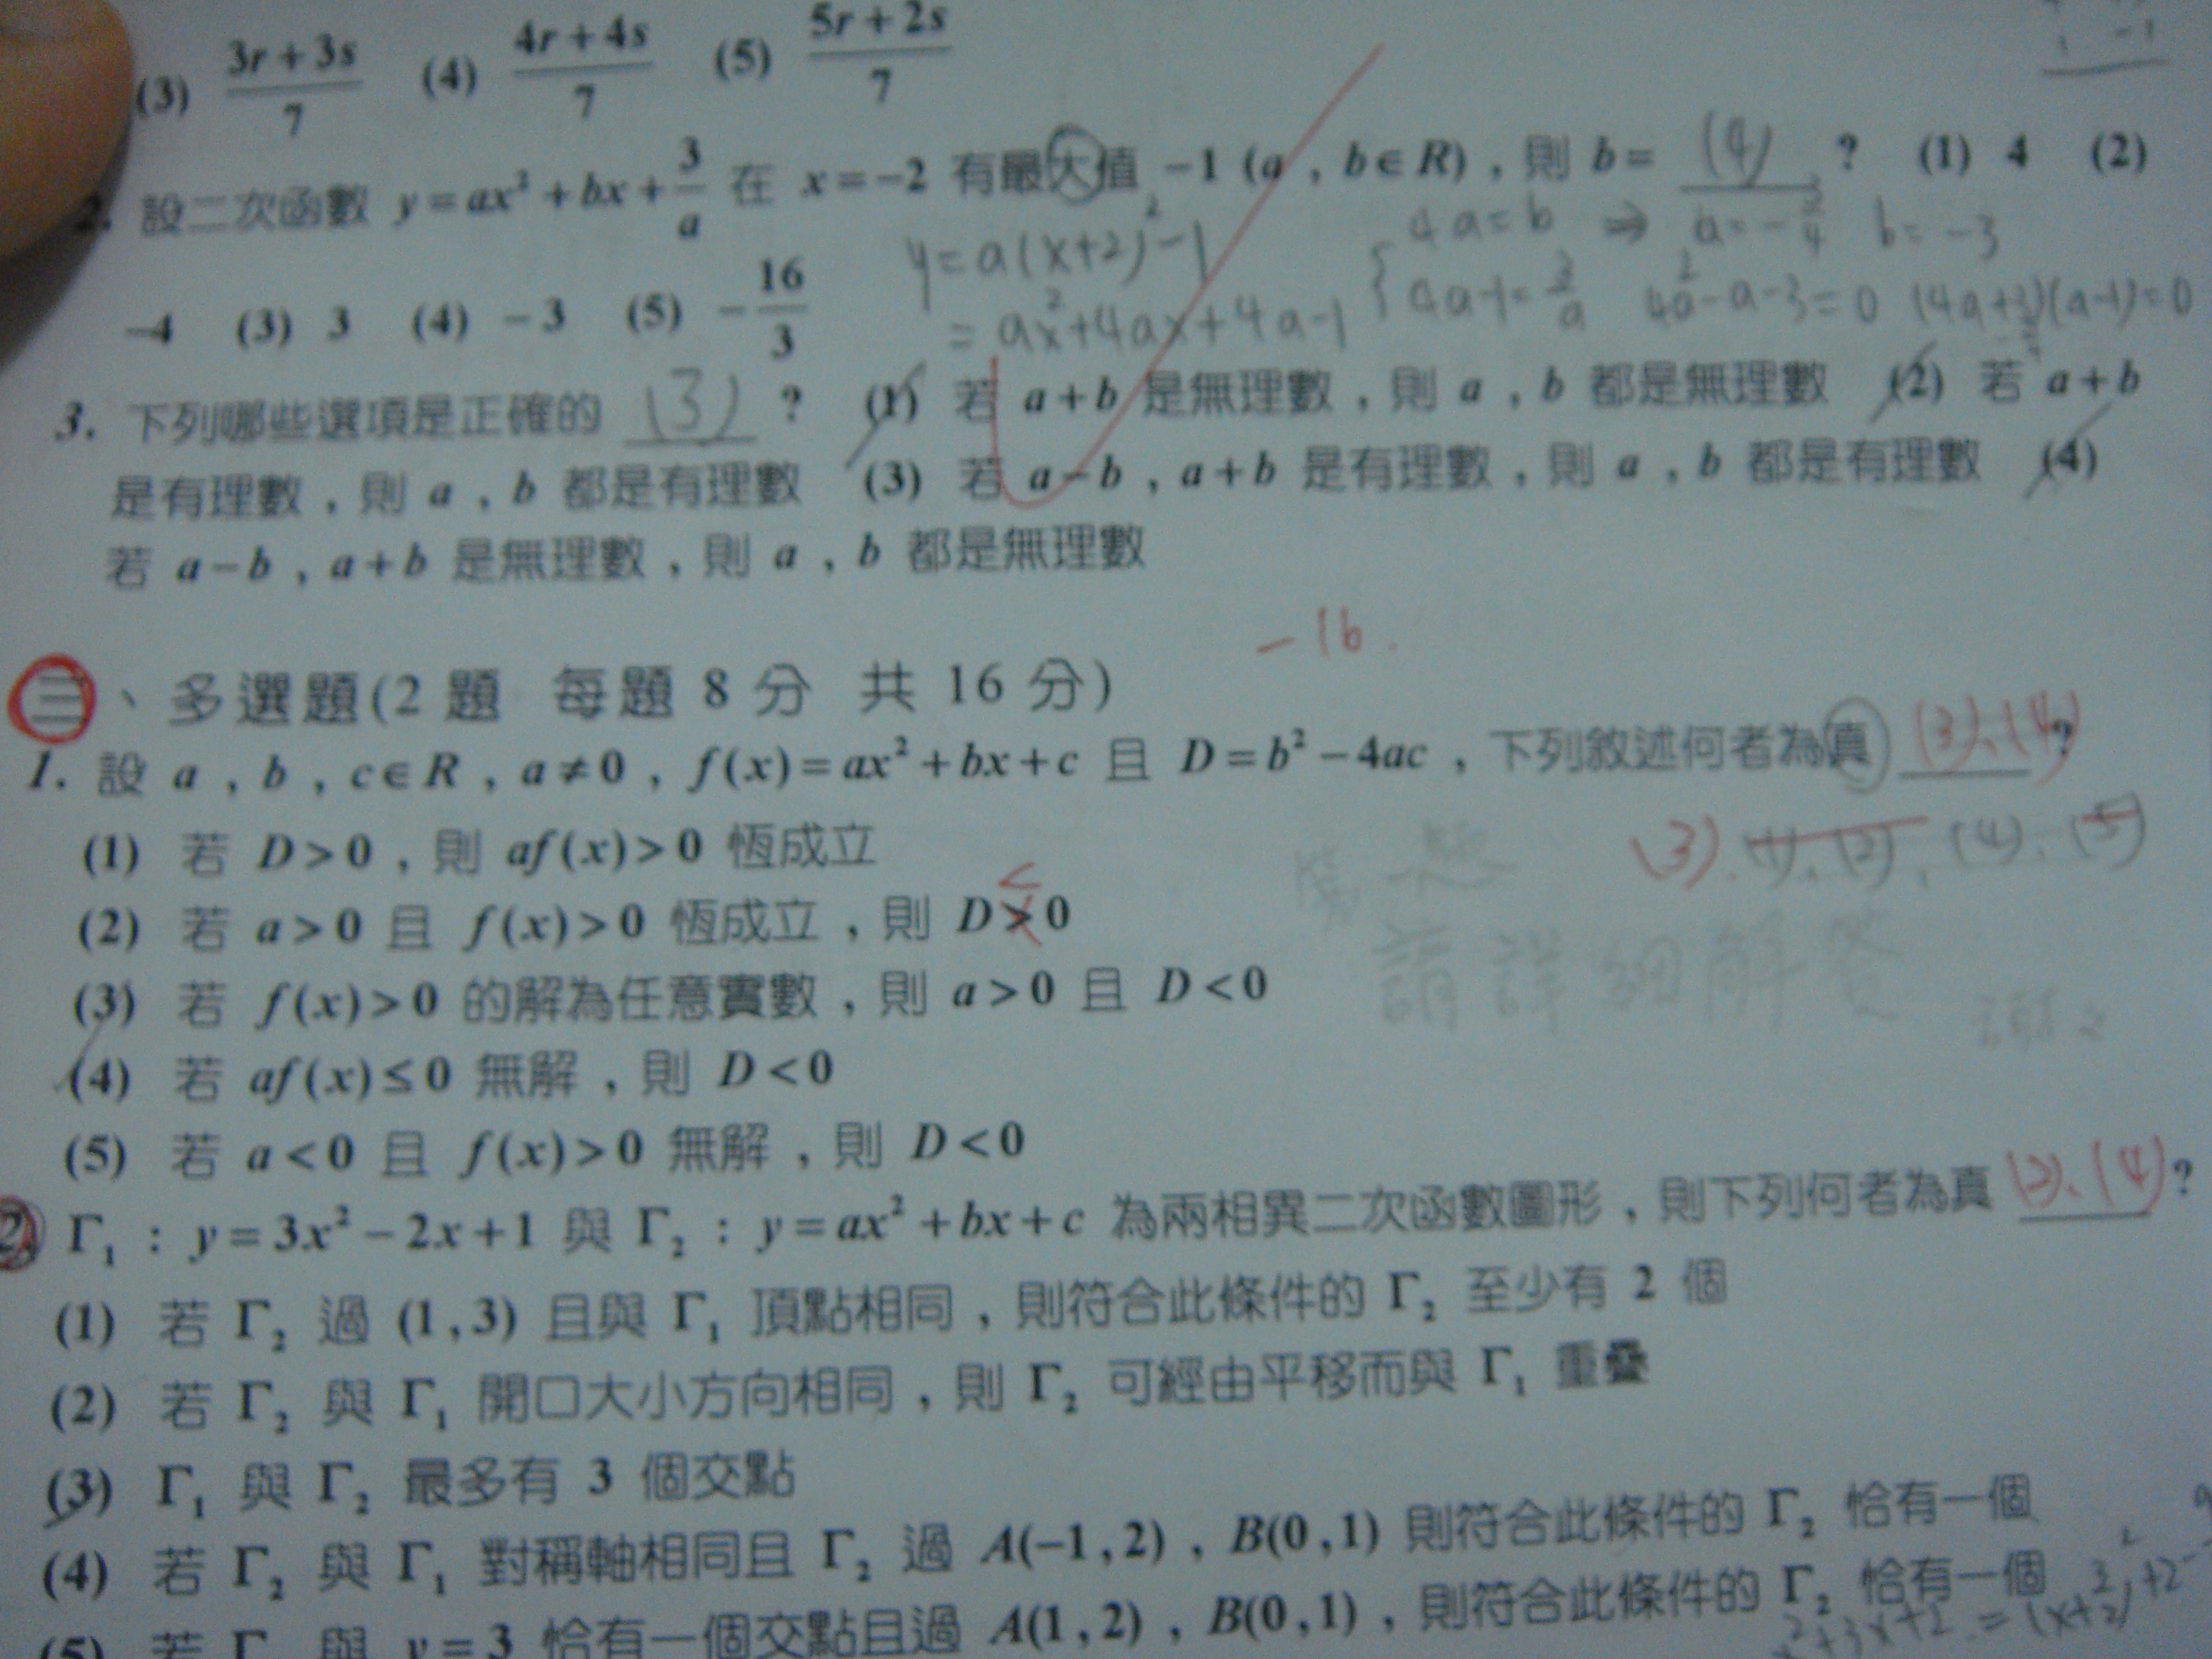 (3) (3r+3s)/7 (4) (4r+4s)/7 (5) (5r+2s)/7
-1
2. 設二次函數 y=ax²+bx+3/a 在 x=-2 有最大值 -1 (a,b∈R),則 b= (4) ? (1) 4 (2)
-4 (3) 3 (4) -3 (5) -16/3
y=a(x+2)²-1
=ax²+4ax+4a-1
4a=b ⇒ a=-3/4 b=-3
4a-1=3/a 4a²-a-3=0 (4a+3)(a-1)=0
3. 下列哪些選項是正確的 (3) ? (1) 若 a+b 是無理數,則 a,b 都是無理數 (2) 若 a+b
是有理數,則 a,b 都是有理數 (3) 若 a-b,a+b 是有理數,則 a,b 都是有理數 (4)
若 a-b,a+b 是無理數,則 a,b 都是無理數
-16.
三、多選題(2 題 每題 8 分 共 16 分)
1. 設 a,b,c∈R,a≠0,f(x)=ax²+bx+c 且 D=b²-4ac,下列敘述何者為真 (3)、(4) ?
(3)、(1)、(2)、(4)、(5)
(1) 若 D>0,則 af(x)>0 恆成立
(2) 若 a>0 且 f(x)>0 恆成立,則 D>0
<
(3) 若 f(x)>0 的解為任意實數,則 a>0 且 D<0
請詳細解答
(4) 若 af(x)≤0 無解,則 D<0
(5) 若 a<0 且 f(x)>0 無解,則 D<0
2. Γ₁:y=3x²-2x+1 與 Γ₂:y=ax²+bx+c 為兩相異二次函數圖形,則下列何者為真 (2)、(4) ?
(1) 若 Γ₂ 過 (1,3) 且與 Γ₁ 頂點相同,則符合此條件的 Γ₂ 至少有 2 個
(2) 若 Γ₂ 與 Γ₁ 開口大小方向相同,則 Γ₂ 可經由平移而與 Γ₁ 重疊
(3) Γ₁ 與 Γ₂ 最多有 3 個交點
(4) 若 Γ₂ 與 Γ₁ 對稱軸相同且 Γ₂ 過 A(-1,2),B(0,1) 則符合此條件的 Γ₂ 恰有一個
(5) 若 Γ 與 y=3 恰有一個交點且過 A(1,2),B(0,1),則符合此條件的 Γ₂ 恰有一個
x²+3x+2=(x+3/2)²+2-